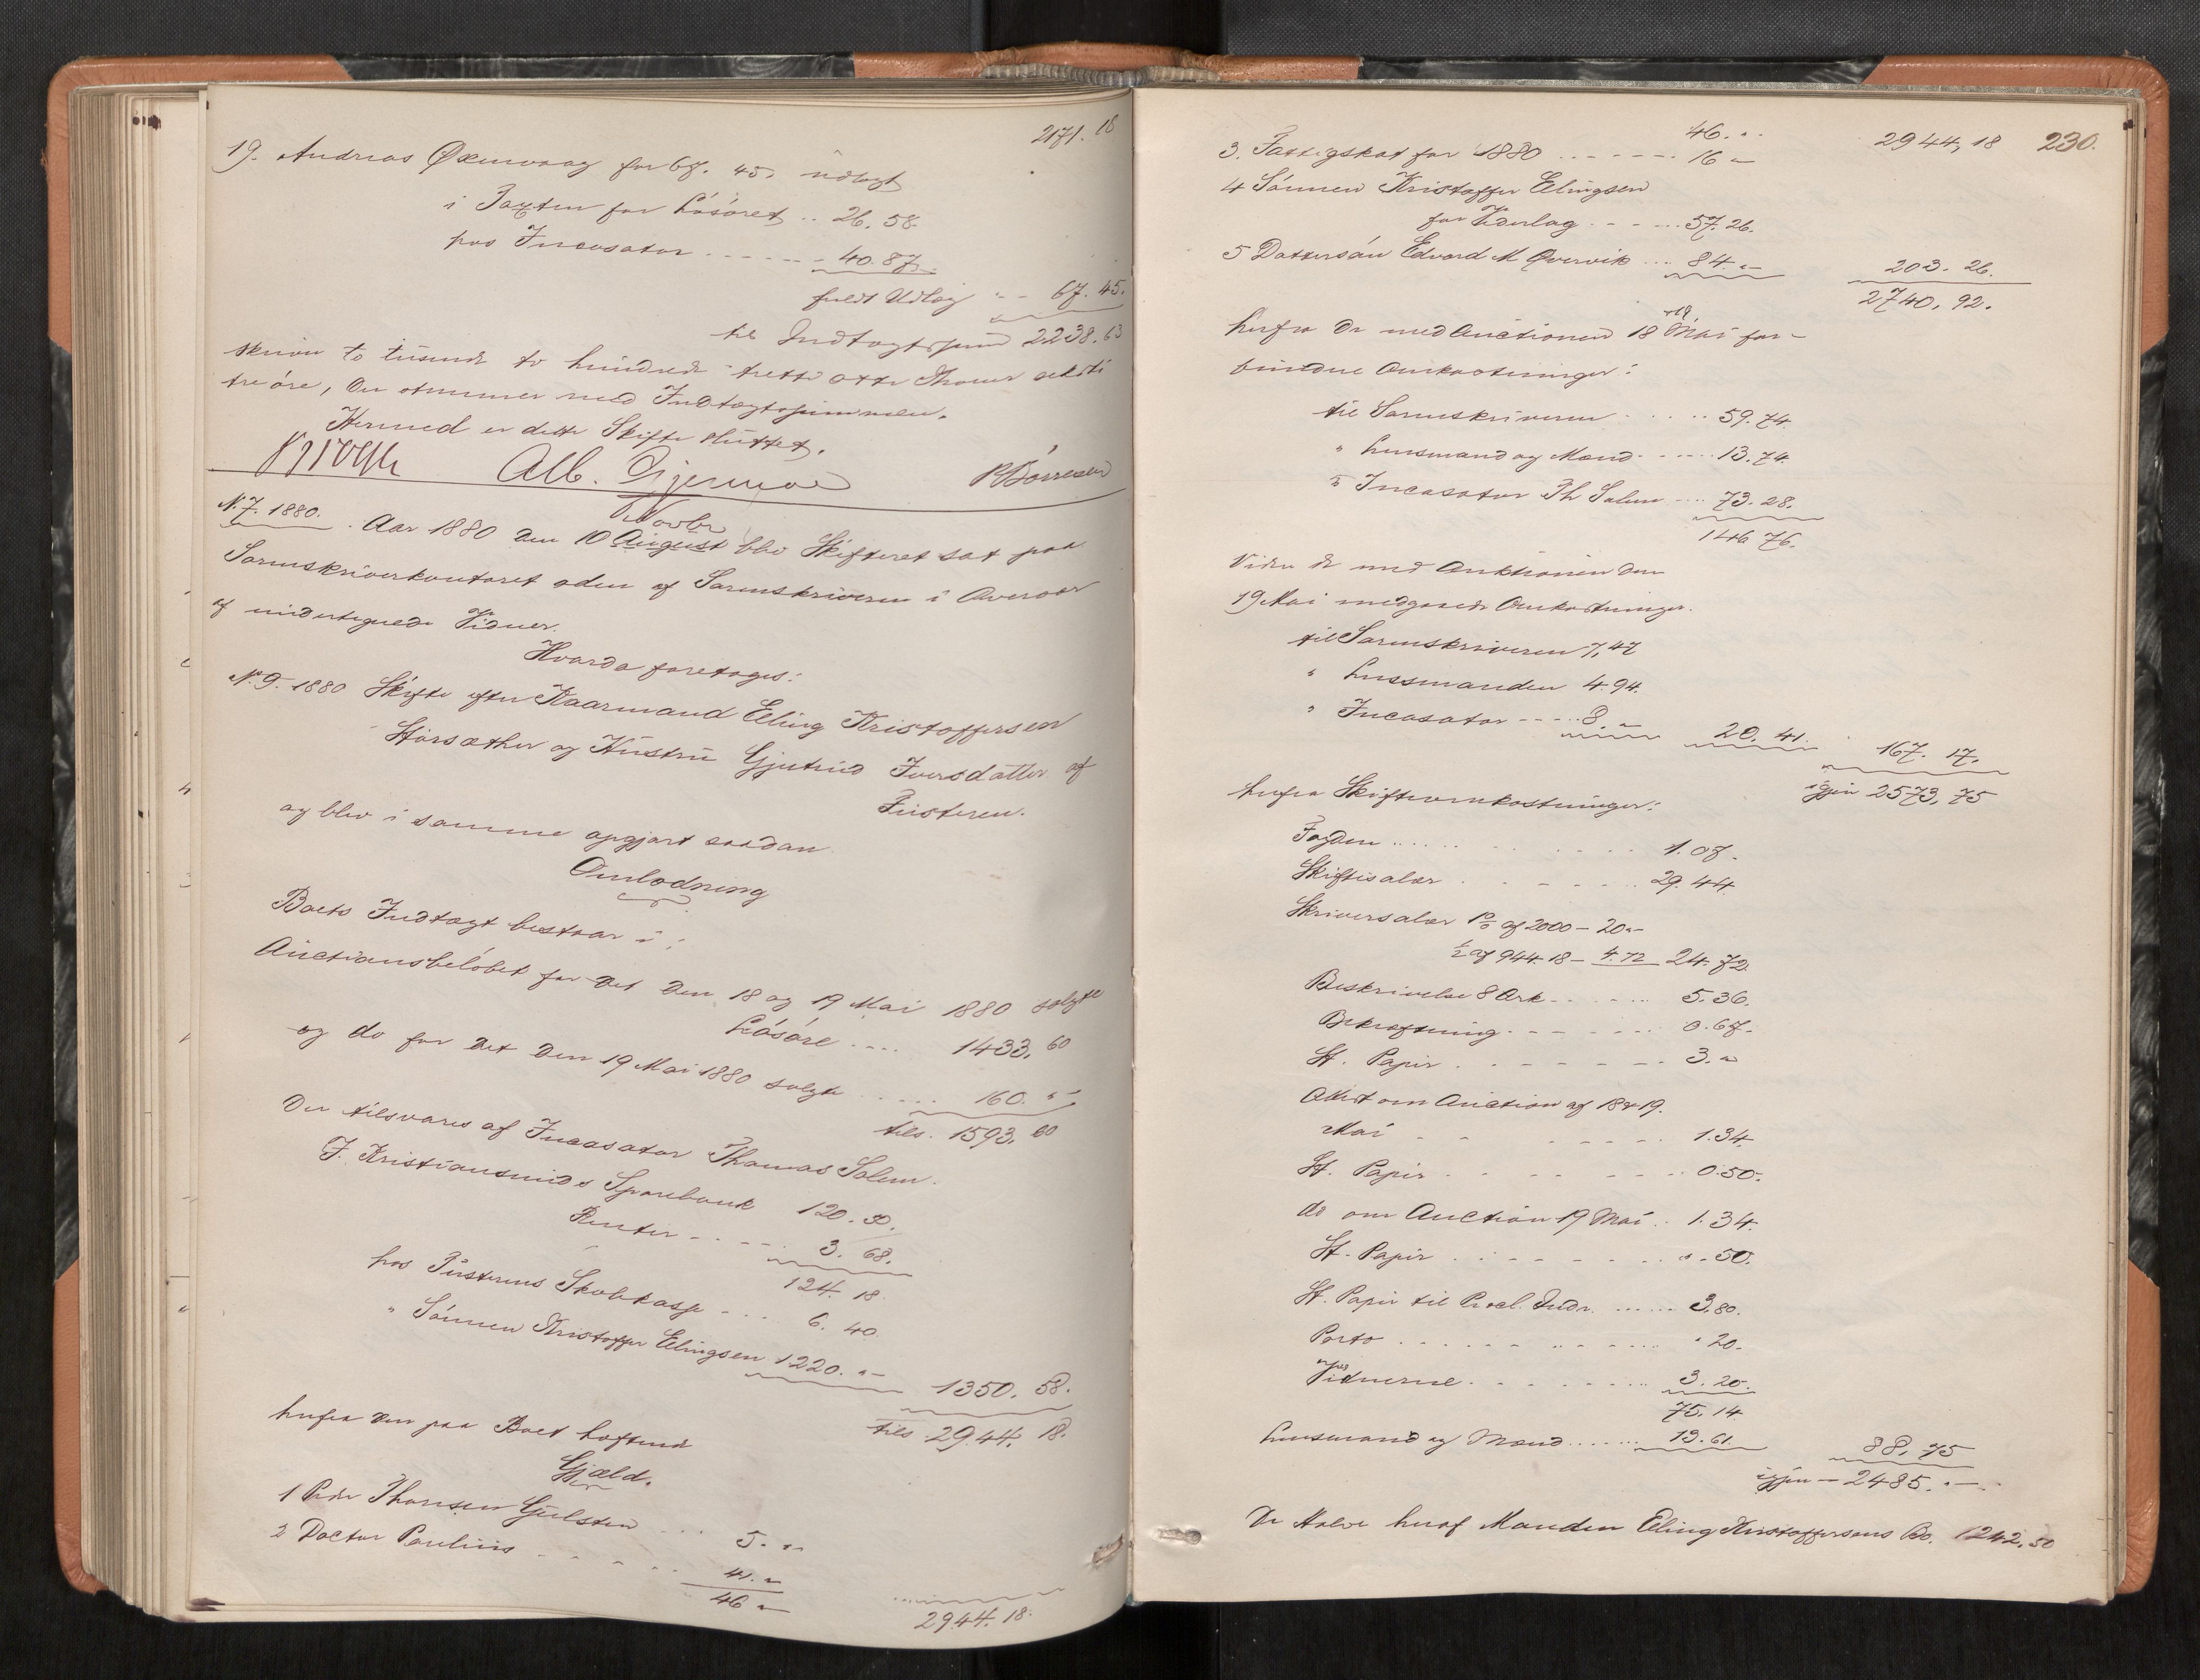 2171. 18
19. Andreas Øxenvaag for 67. 45. udlagt
i Taxten for Løsøret .. 26. 58.
hos Incasator ...... 40. 87.
fuldt Udlæg .. 67. 45.
til Indtægtssum 2238. 63
skriver to tusinde to hundrede trette otte Kroner seksti
tre øre, der stemmer med Indtægtssummen.
Hermed er dette Skifte sluttet.
Alb. Gjermoe P Børresen
N. 7. 1880. Aar 1880 den 10 August Novbr blev Skifteret sat paa
Sorenskriverkontoret sammesteds af Sorenskriveren i Overvær
af undertegnede Vidner.
Hvorda foretoges:
N. 9. 1880 Skifte efter Kaarmand Elling Kristoffersen
Storsæther og Hustru Gjertrud Iversdatter af
Tusteren.
og blev i samme opgjort saadan
Omlodning
Boets Indtægt bestaar i:
Auctionsbeløbet for det den 18 og 19 Mai 1880 solgte
Løsøre .... 1433. 60
og do for det den 19 Mai 1880 solgte ..... 160. "
tils. 1593. 60
Der tilsvares af Incasator Thomas Solem.
I Kristiansunds Sparebank 120. 50.
Renter ..... 3. 68.
124. 18
hos Tusterens Skolekasse ... 6. 40
" Sønnen Kristoffer Elingsen 1220. "
1350. 58.
tils. 2944. 18.
herfra den paa Boet heftende
Gjæld.
1 Peder Thoresen Gulsten ... 5. "
2 Doctor Paulius ..... 41. "
46 "
2944. 18.
230.
46. " 2944, 18
3. Fattigskat for 1880 ...... 16 "
4 Sønnen Kristoffer Elingsen
for Vederlag ..... 57. 26.
5 Dattersøn Edvard M Øvervik ... 84. "
203. 26.
2740. 92.
herfra de med Auctionen 18 " 19 Mai for-
bundne Omkostninger:
til Sorenskriveren ..... 59. 74.
" Lensmand og Mænd ..... 13. 74.
" Incasator Th Solem ... 73. 28.
146 76.
Videre de med Auktionen den
19 Mai medgaaede Omkostninger.
til Sorenskriveren 7,47
" Lensmanden 4. 94.
" Incasator .... 8. " 20. 41. 167. 17.
igjen 2573, 75
herfra Skifteomkostninger:
Fogden ...... 1. 07.
Skiftesalær ..... 29. 44.
Skriversalær 1% af 2000 — 20 "
½ af 944. 18 — 4. 72 24. 72.
Beskrivelse 8 Ark ...... 5. 36.
Bekræftning ...... 0. 67.
St. Papir ...... 3. "
Attest om Auction af 18 & 19.
Mai ...... 1. 34.
St. Papir ...... 0. 50.
do om Auction 19 Mai .. 1. 34.
St. Papir ...... " . 50.
St. Papir til Procl. Indr. ...... 3. 80.
Porto ...... " 20.
Vidnerne ...... 3. 20.
75. 14
Lensmand og Mænd ...... 13. 61. 88, 75
igjen — 2485. "
De Halve heraf Manden Eling Kristoffersens Bo. 1242, 50